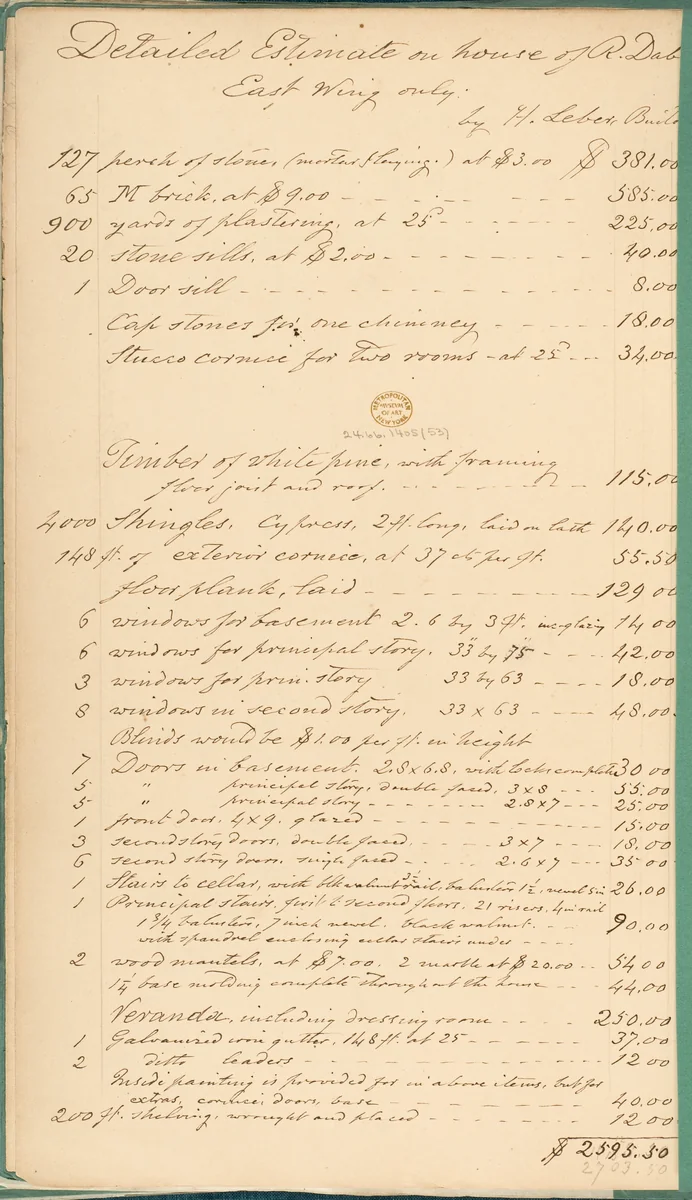 Detailed Estimate on house of R. Dab
East Wing only:
by H. Leber, Build
127 perch of stones (mortar & laying.) at $3.00 $ 381.00
65 M brick, at $9.00 - - - - - - 585.00
900 yards of plastering, at 25c - - - - - - 225.00
20 stone sills, at $2.00 - - - - - - - 40.00
1 Door sill - - - - - - - - - - 8.00
Cap stones for one chimney - - - - - 18.00
Stucco cornice for two rooms - at 25c - - - 34.00
METROPOLITAN MUSEUM OF ART NEW YORK
24.66.1405(53)
Timber of white pine, with framing
floor joist and roof. - - - - - - - - 115.00
4000 Shingles, Cypress, 2 ft. long, laid on lath 140.00
148 ft. of exterior cornice, at 37 cts per ft. 55.50
floor plank, laid - - - - - - - - - 129 00
6 windows for basement 2.6 by 3 ft. inc-glazing 14 00
6 windows for principal story. 33" by 75" - - - - 42.00
3 windows for prin. story 33 by 63 - - - - 18.00
8 windows in second story. 33 x 63 - - - - 48.00
Blinds would be $1.00 per ft. in height
7 Doors in basement. 2.8 x 6.8, with locks complete 30 00
5 " principal story, double faced, 3 x 8 - - - - 55.00
5 " principal story - - - - - - - 2.8 x 7 - - - 25.00
1 front door, 4 x 9, glazed - - - - - - - - - - 15.00
3 second story doors, double faced. - - - - 3 x 7 - - - - 18.00
6 second story doors, single faced - - - - 2.6 x 7 - - - 35 00
1 Stairs to cellar, with blk walnut rail, balusters 1½, newel 5 in 26.00
1 Principal stairs, first to second floors. 21 risers, 4 in rail
1 3/4 balusters, 7 inch newel. black walnut. - - - 90.00
with spandrel enclosing cellar stairs under - - - -
2 wood mantels, at $7.00. 2 marble at $20.00 - - 54 00
1¼ base molding complete throughout the house - - - - 44.00
Veranda, including dressing room - - - - 250.00
1 Galvanized iron gutter, 148 ft. at 25 - - - - - 37.00
2 ditto leaders - - - - - - - - - 12 00
Inside painting is provided for in above items, but for
extras, cornice, doors, base - - - - - - - 40.00
200 ft. shelving, wrought and placed - - - - - - 12 00
$ 2595.50
2703.50